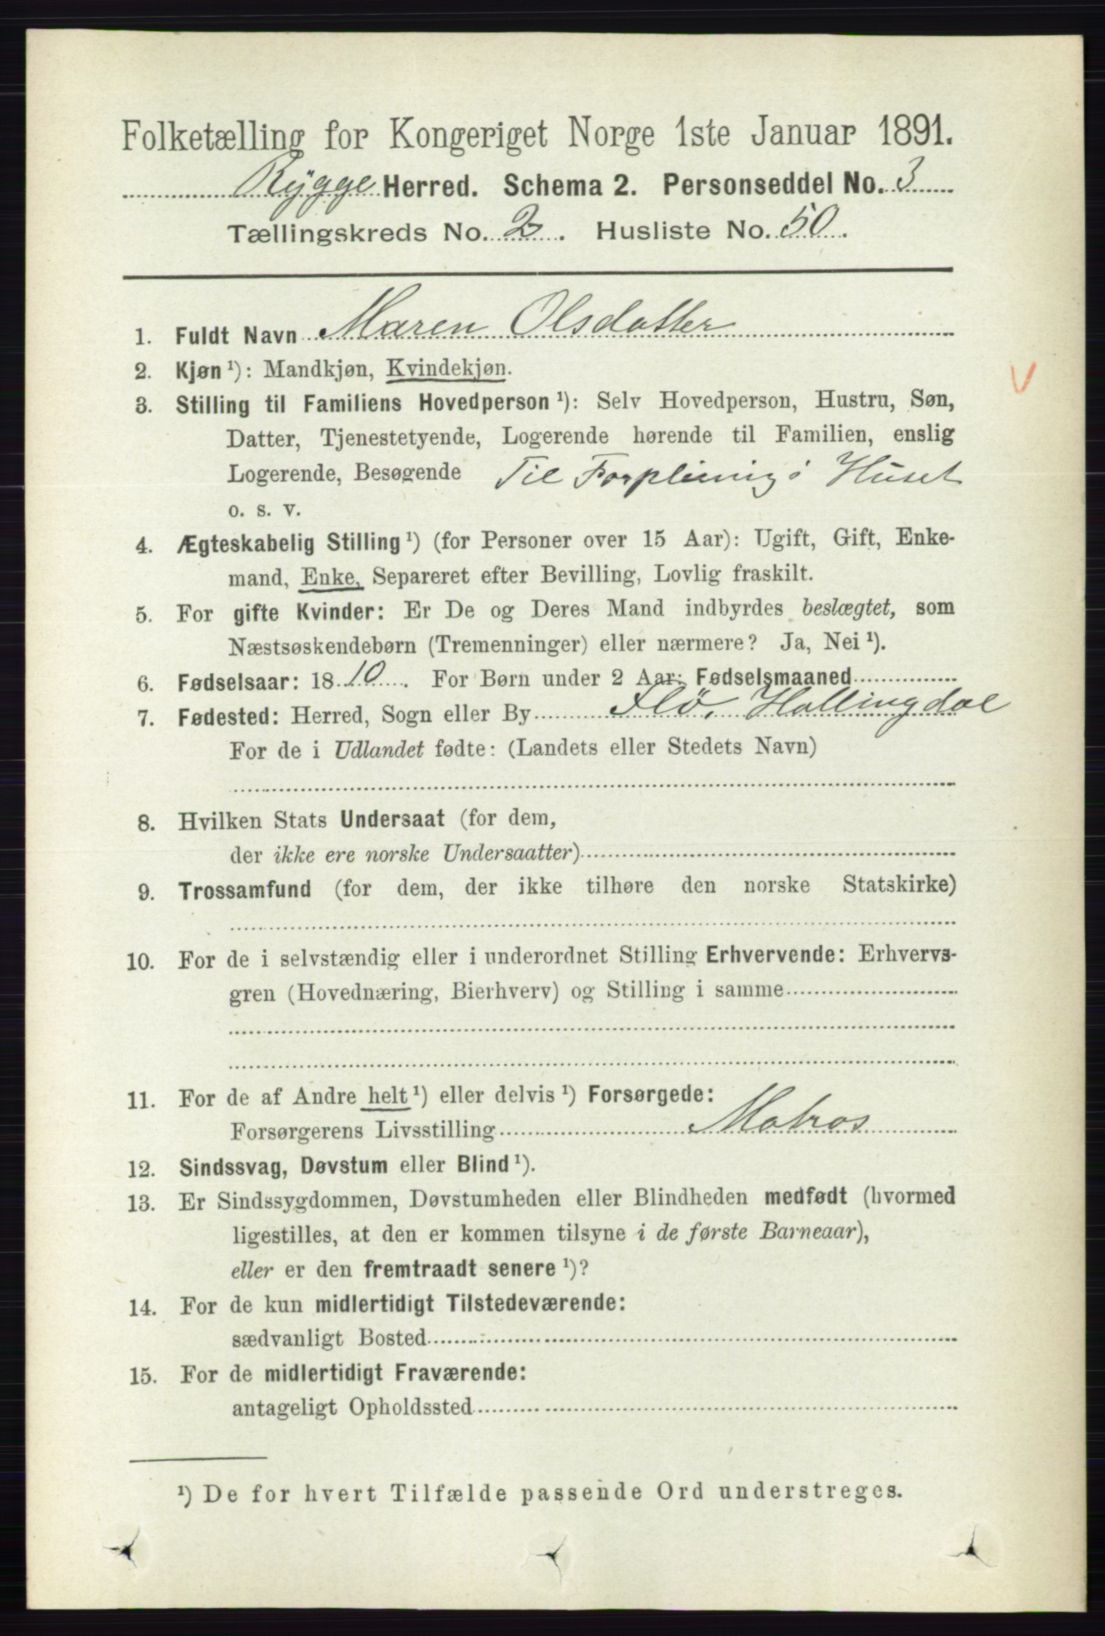 Folketælling for Kongeriget Norge 1ste Januar 1891.
Rygge Herred. Schema 2. Personseddel No. 3
Tællingskreds No. 2. Husliste No. 50.
1. Fuldt Navn Maren Olsdatter
2. Kjøn ¹): Mandkjøn, Kvindekjøn.
3. Stilling til Familiens Hovedperson ¹): Selv Hovedperson, Hustru, Søn,
Datter, Tjenestetyende, Logerende hørende til Familien, enslig
Logerende, Besøgende Til Forpleining i Huset
o. s. v.
4. Ægteskabelig Stilling ¹) (for Personer over 15 Aar): Ugift, Gift, Enke-
mand, Enke, Separeret efter Bevilling, Lovlig fraskilt.
5. For gifte Kvinder: Er De og Deres Mand indbyrdes beslægtet, som
Næstsøskendebørn (Tremenninger) eller nærmere? Ja, Nei ¹).
6. Fødselsaar: 1810. For Børn under 2 Aar: Fødselsmaaned
7. Fødested: Herred, Sogn eller By Flø, Hallingdal
For de i Udlandet fødte: (Landets eller Stedets Navn)
8. Hvilken Stats Undersaat (for dem,
der ikke ere norske Undersaatter)
9. Trossamfund (for dem, der ikke tilhøre den norske Statskirke)
10. For de i selvstændig eller i underordnet Stilling Erhvervende: Erhvervs-
gren (Hovednæring, Bierhverv) og Stilling i samme
11. For de af Andre helt ¹) eller delvis ¹) Forsørgede:
Forsørgerens Livsstilling Matros
12. Sindssvag, Døvstum eller Blind ¹).
13. Er Sindssygdommen, Døvstumheden eller Blindheden medfødt (hvormed
ligestilles, at den er kommen tilsyne i de første Barneaar),
eller er den fremtraadt senere ¹)?
14. For de kun midlertidigt Tilstedeværende:
sædvanligt Bosted
15. For de midlertidigt Fraværende:
antageligt Opholdssted
¹) De for hvert Tilfælde passende Ord understreges.